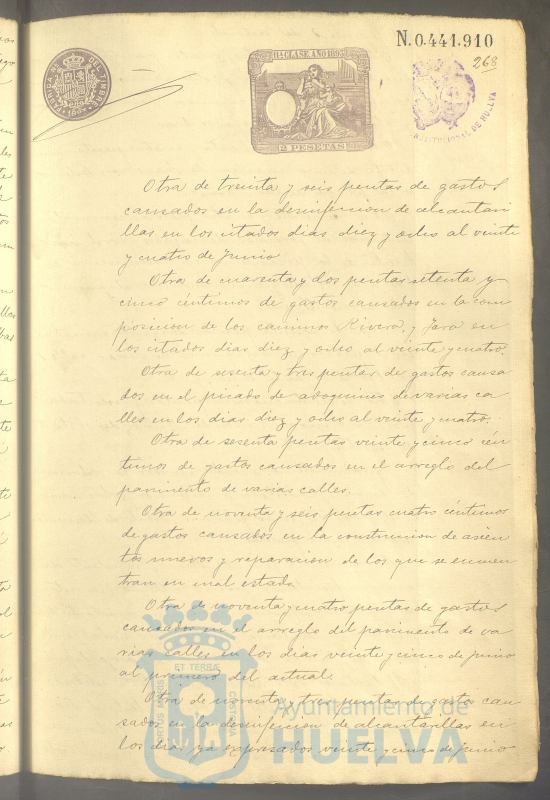 N. 0.441.910
268
FABRICA DEL TIMBRE
11ª CLASE AÑO 189
2 PESETAS
CONSTITUCIONAL DE HUELVA
Otra de treinta y seis pesetas de gastos
causados en la desinfeccion de alcantari
llas en los citados dias diez y ocho al veinte
y cuatro de Junio
Otra de cuarenta y dos pesetas setenta y
cinco céntimos de gastos causados en la com
posicion de los caminos Rivera y Jara en
los citados dias diez y ocho al veinte y cuatro.
Otra de sesenta y tres pesetas de gastos causa
dos en el picado de adoquines de varias ca
lles en los dias diez y ocho al veinte y cuatro.
Otra de sesenta pesetas veinte y cinco cén
timos de gastos causados en el arreglo del
pavimento de varias calles.
Otra de noventa y seis pesetas cuatro céntimos
de gastos causados en la construccion de asien
tos nuevos y reparacion de los que se encuen
tran en mal estado
Otra de noventa y cuatro pesetas de gastos
causados en el arreglo del pavimento de va
rias calles en los dias veinte y cinco de Junio
al primero del actual.
Otra de noventa y tres pesetas de gastos cau
sados en la desinfeccion de alcantarillas en
los dias ya expresados veinte y cinco de Junio
PORTUS MARIS ET TERRÆ CUSTODIA
Ayuntamiento de
HUELVA